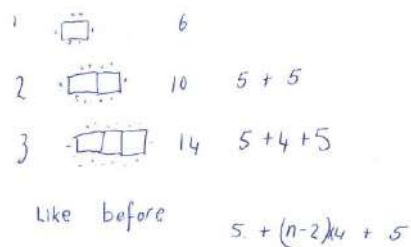 1 6
2 10 5 + 5
3 14 5+4+5
Like before
5 + (n-2)x4 + 5